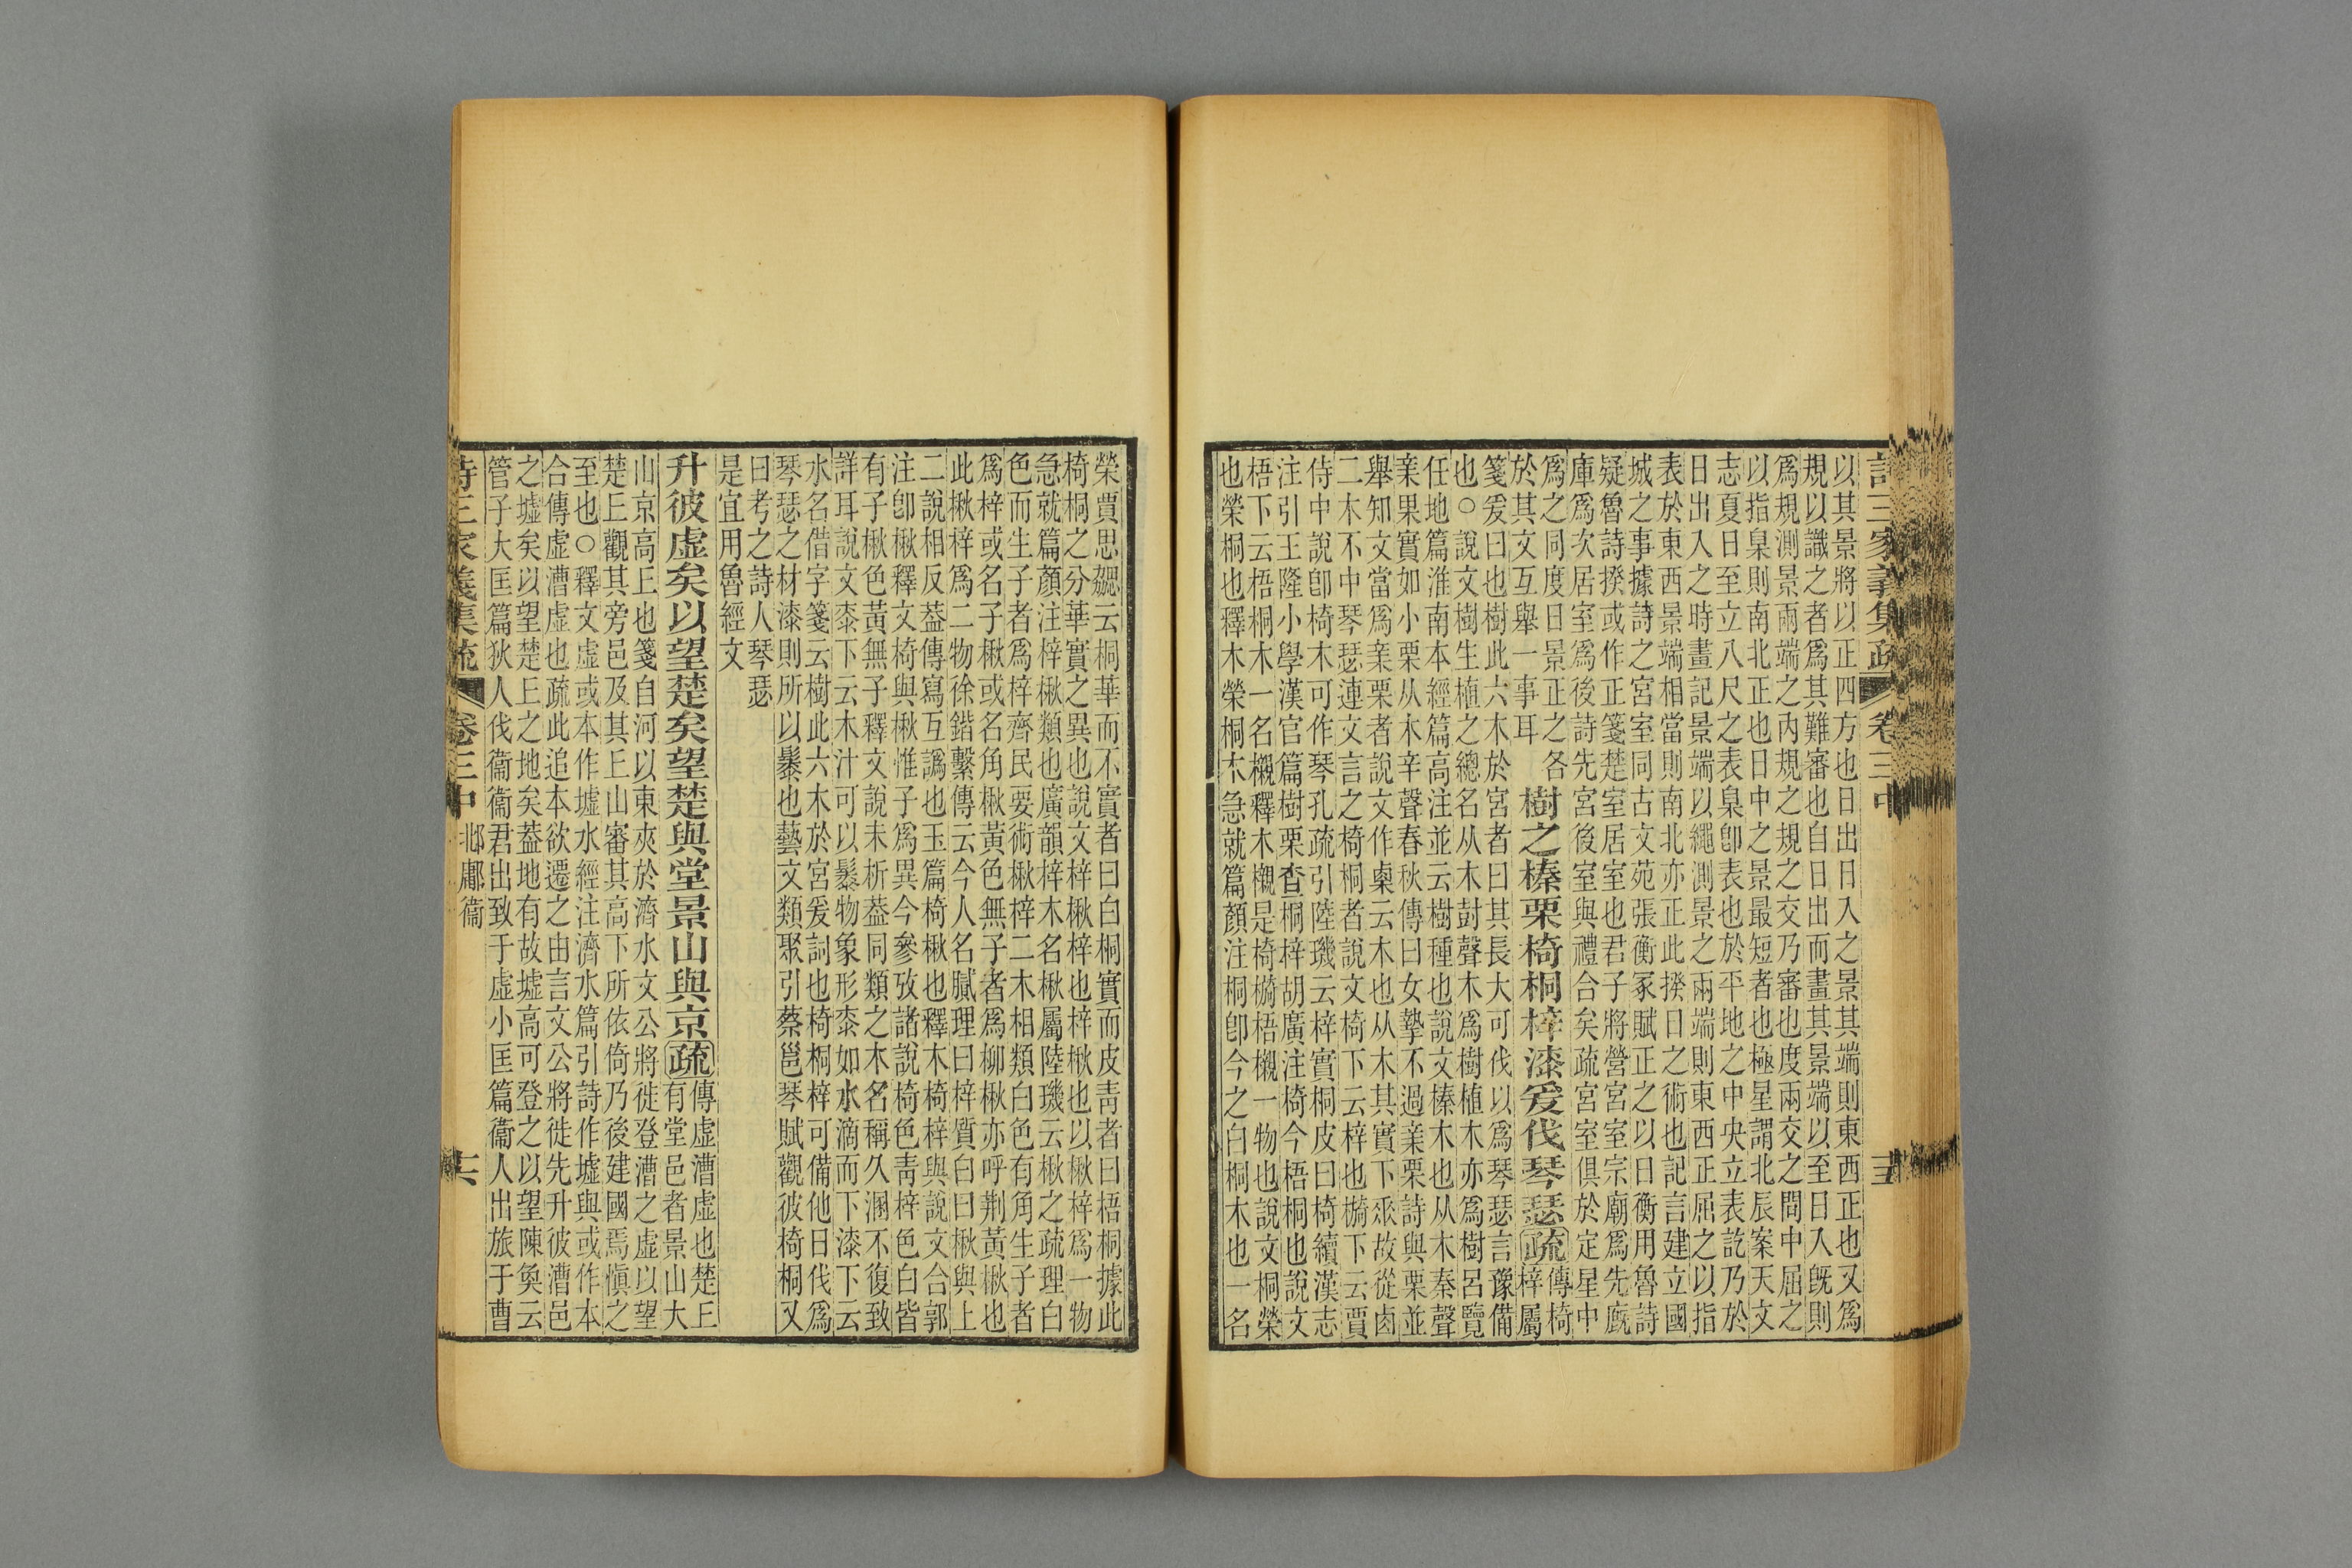 詩三家義集疏 卷三中 十五
以其景將以正四方也日出日入之景其端則東西正也又爲
規以識之者爲其難審也自日出而畫其景端以至日入既則
爲規測景兩端之內規之規之交乃審也度兩交之間中屈之
以指臬則南北正也日中之景最短者也極星謂北辰案天文
志夏日至立八尺之表臬卽表也於平地之中央立表訖乃於
日出入之時畫記景端以繩測景之兩端則東西正屈之以指
表於東西景端相當則南北亦正此揆日之術也記言建立國
城之事據詩之宮室同古文苑張衡冢賦正之以日衡用魯詩
疑魯詩揆或作正箋楚室居室也君子將營宮室宗廟爲先廐
庫爲次居室爲後詩先宮後室與禮合矣疏宮室俱於定星中
爲之同度日景正之各
於其文互舉一事耳
樹之榛栗椅桐梓漆爰伐琴瑟疏
傳椅
梓屬
箋爰曰也樹此六木於宮者曰其長大可伐以爲琴瑟言豫備
也○說文樹生植之總名从木尌聲木爲樹植木亦爲樹呂覽
任地篇淮南本經篇高注並云樹種也說文榛木也从木秦聲
亲果實如小栗从木辛聲春秋傳曰女摯不過亲栗詩與栗並
舉知文當爲亲栗者說文作㮚云木也从木其實下𠂹故從卤
二木不中琴瑟連文言之椅桐者說文椅下云梓也檹下云賈
侍中說卽椅木可作琴孔疏引陸璣云梓實桐皮曰椅續漢志
注引王隆小學漢官篇樹栗查桐梓胡廣注椅今梧桐也說文
梧下云梧桐木一名櫬釋木櫬是椅檹梧櫬一物也說文桐榮
也榮桐也釋木榮桐木急就篇顏注桐卽今之白桐木也一名
榮賈思勰云桐華而不實者曰白桐實而皮靑者曰梧桐據此
椅桐之分華實之異也說文梓楸梓也梓楸也以楸梓爲一物
急就篇顏注梓楸類也廣韻梓木名楸屬陸璣云楸之疏理白
色而生子者爲梓齊民要術楸梓二木相類白色有角生子者
爲梓或名子楸或名角楸黃色無子者爲柳楸亦呼荆黃楸也
此楸梓爲二物徐鍇繫傳云今人名膩理曰梓質白曰楸與上
二說相反葢傳寫互譌也玉篇椅楸也釋木椅梓與說文合郭
注卽楸釋文椅與楸惟子爲異今參攷諸說椅色靑梓色白皆
有子楸色黃無子釋文說未析葢同類之木名稱久溷不復致
詳耳說文桼下云木汁可以䰍物象形桼如水滴而下漆下云
水名借字箋云樹此六木於宮爰詞也椅桐梓可備他日伐爲
琴瑟之材漆則所以䰍也藝文類聚引蔡邕琴賦觀彼椅桐又
曰考之詩人琴瑟
是宜用魯經文
升彼虛矣以望楚矣望楚與堂景山與京疏
傳虛漕虛也楚丘
有堂邑者景山大
山京高丘也箋自河以東夾於濟水文公將徙登漕之虛以望
楚丘觀其旁邑及其丘山審其高下所依倚乃後建國焉愼之
至也○釋文虛或本作墟水經注濟水篇引詩作墟與或作本
合傳虛漕虛也疏此追本欲遷之由言文公將徙先升彼漕邑
之墟矣以望楚丘之地矣葢地有故墟高可登之以望陳奐云
管子大匡篇狄人伐衞衞君出致于虛小匡篇衞人出旅于曹
詩三家義集疏 卷三中 邶鄘衞 十六